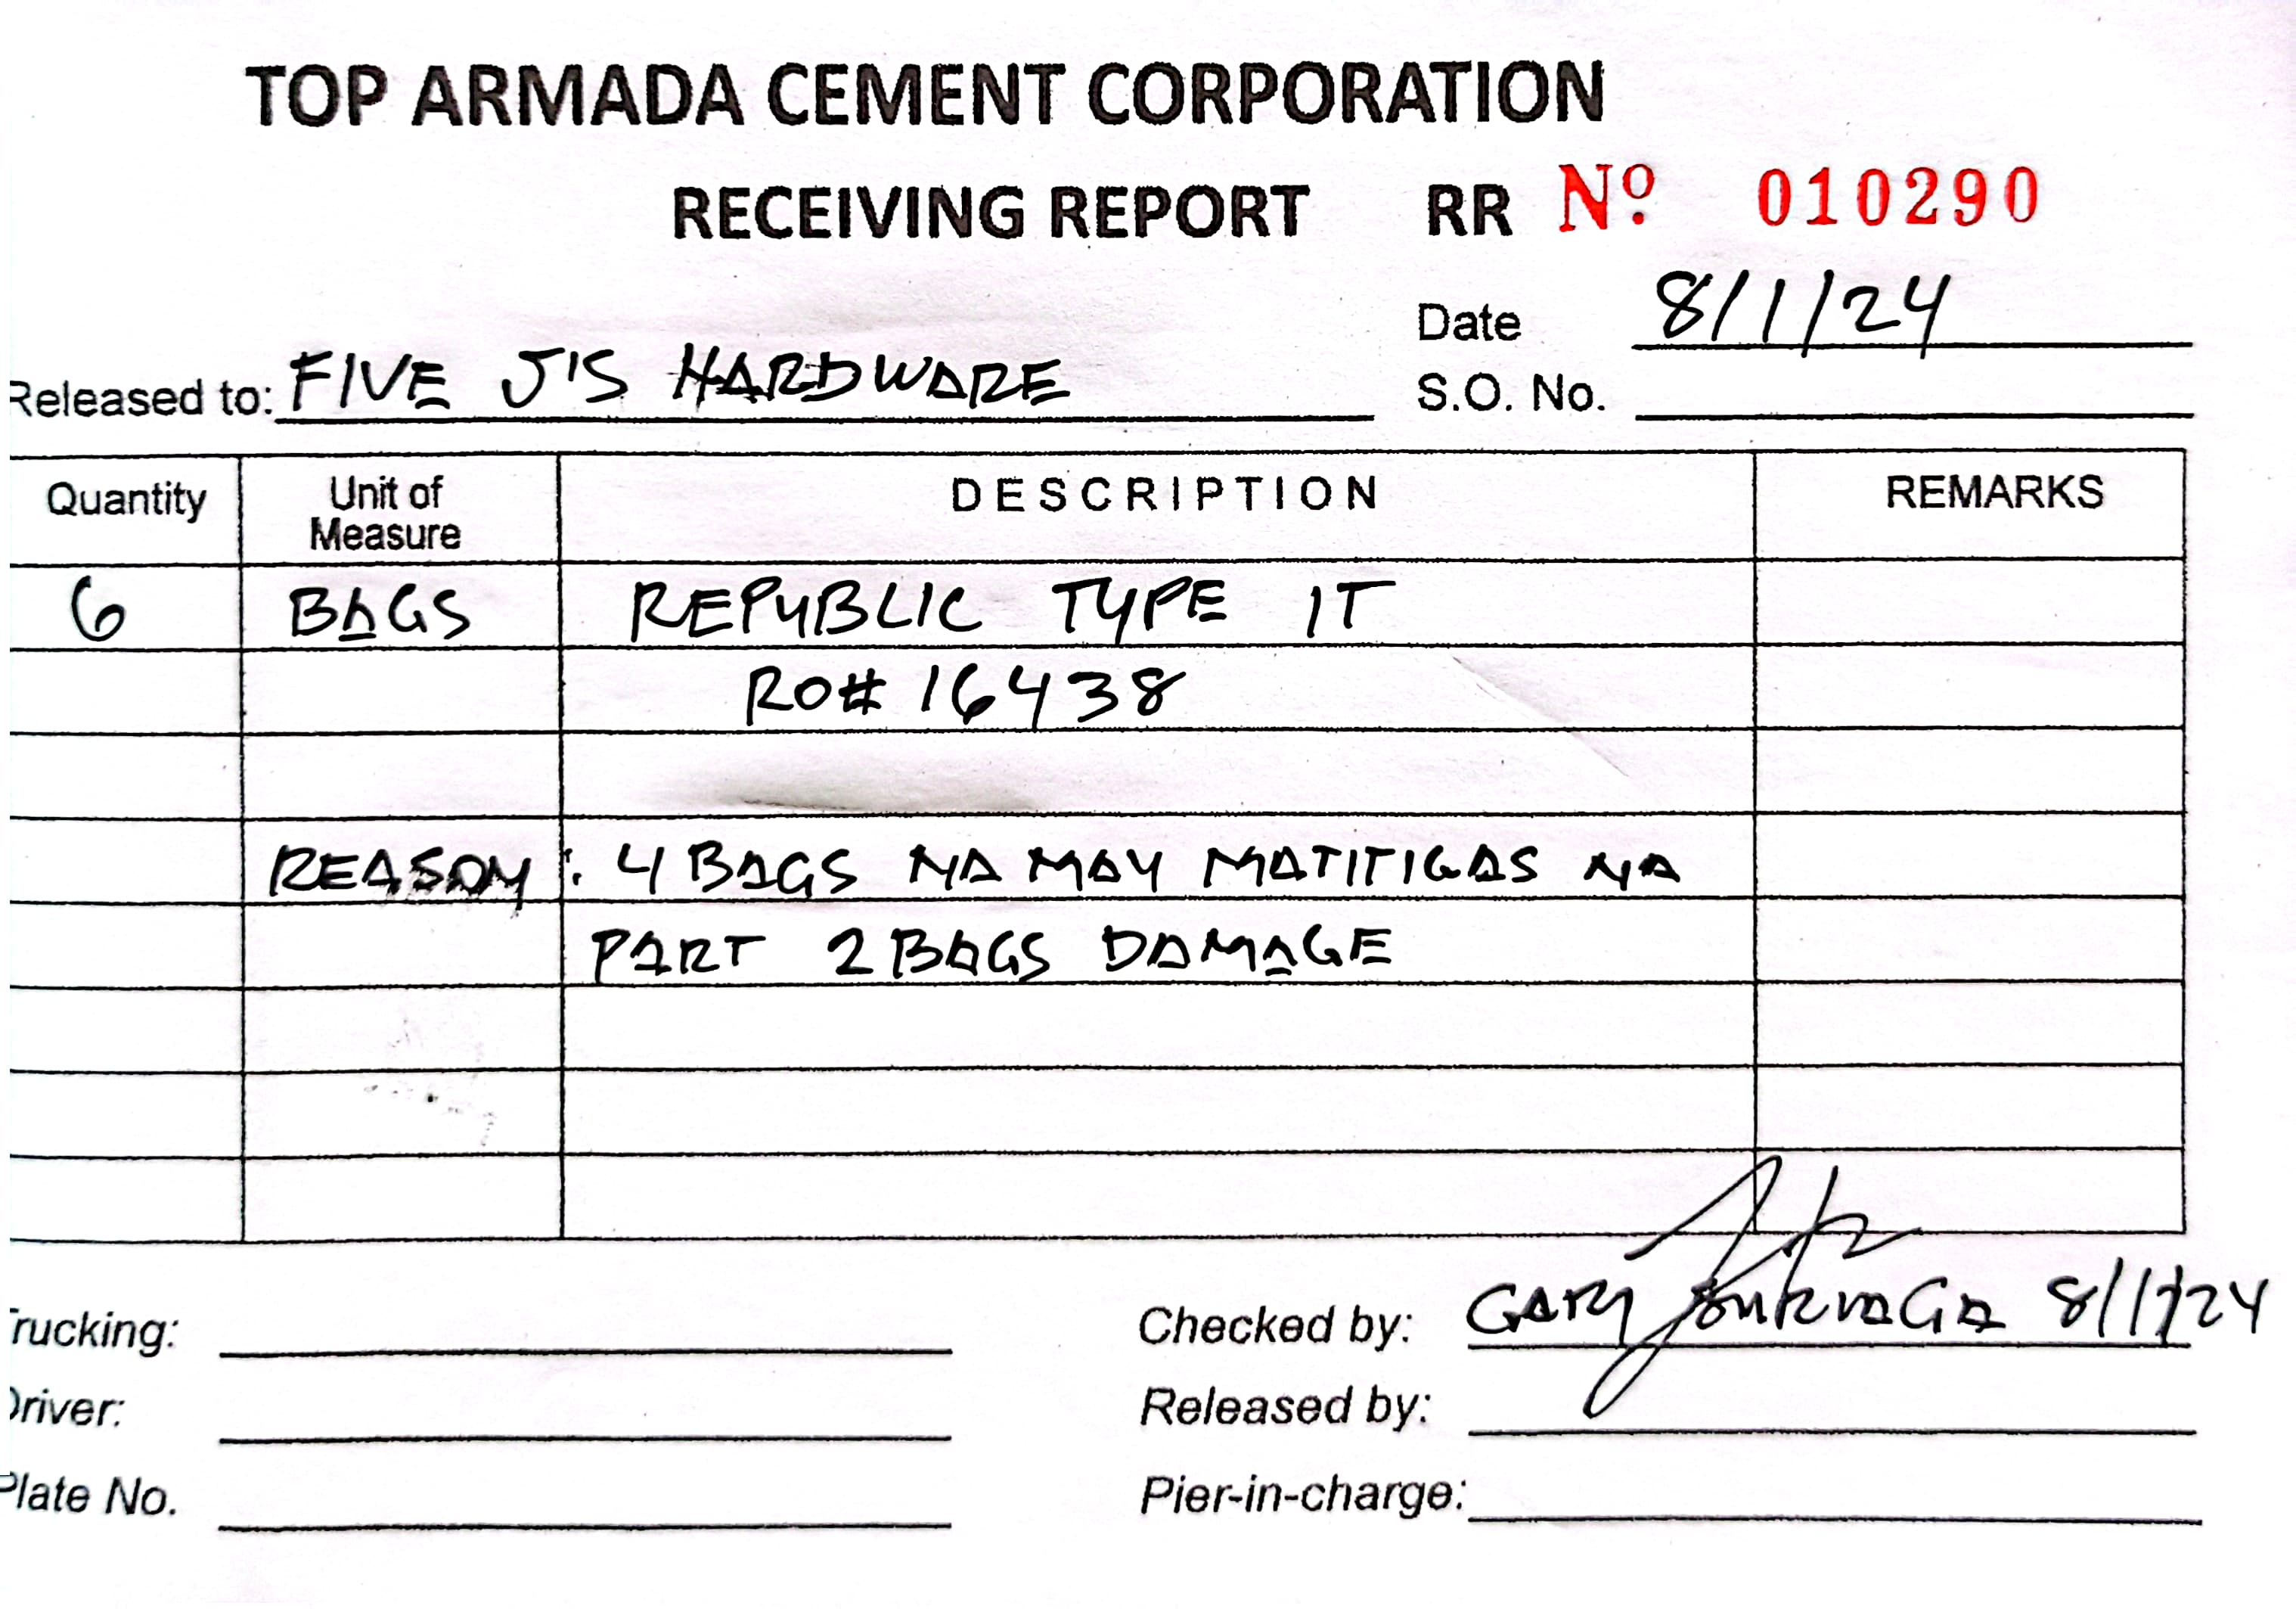 TOP ARMADA CEMENT CORPORATION
RECEIVING REPORT RR Nº 010290
Date 8/1/24
Released to: FIVE J'S HARDWARE
S.O. No.
Quantity Unit of Measure DESCRIPTION REMARKS
6 BAGS REPUBLIC TYPE 1T
RO# 16438
REASON: 4 BAGS NA MAY MATITIGAS NA
PART 2 BAGS DAMAGE
Trucking: Checked by: GARY 8/1/24
Driver: Released by:
Plate No. Pier-in-charge: